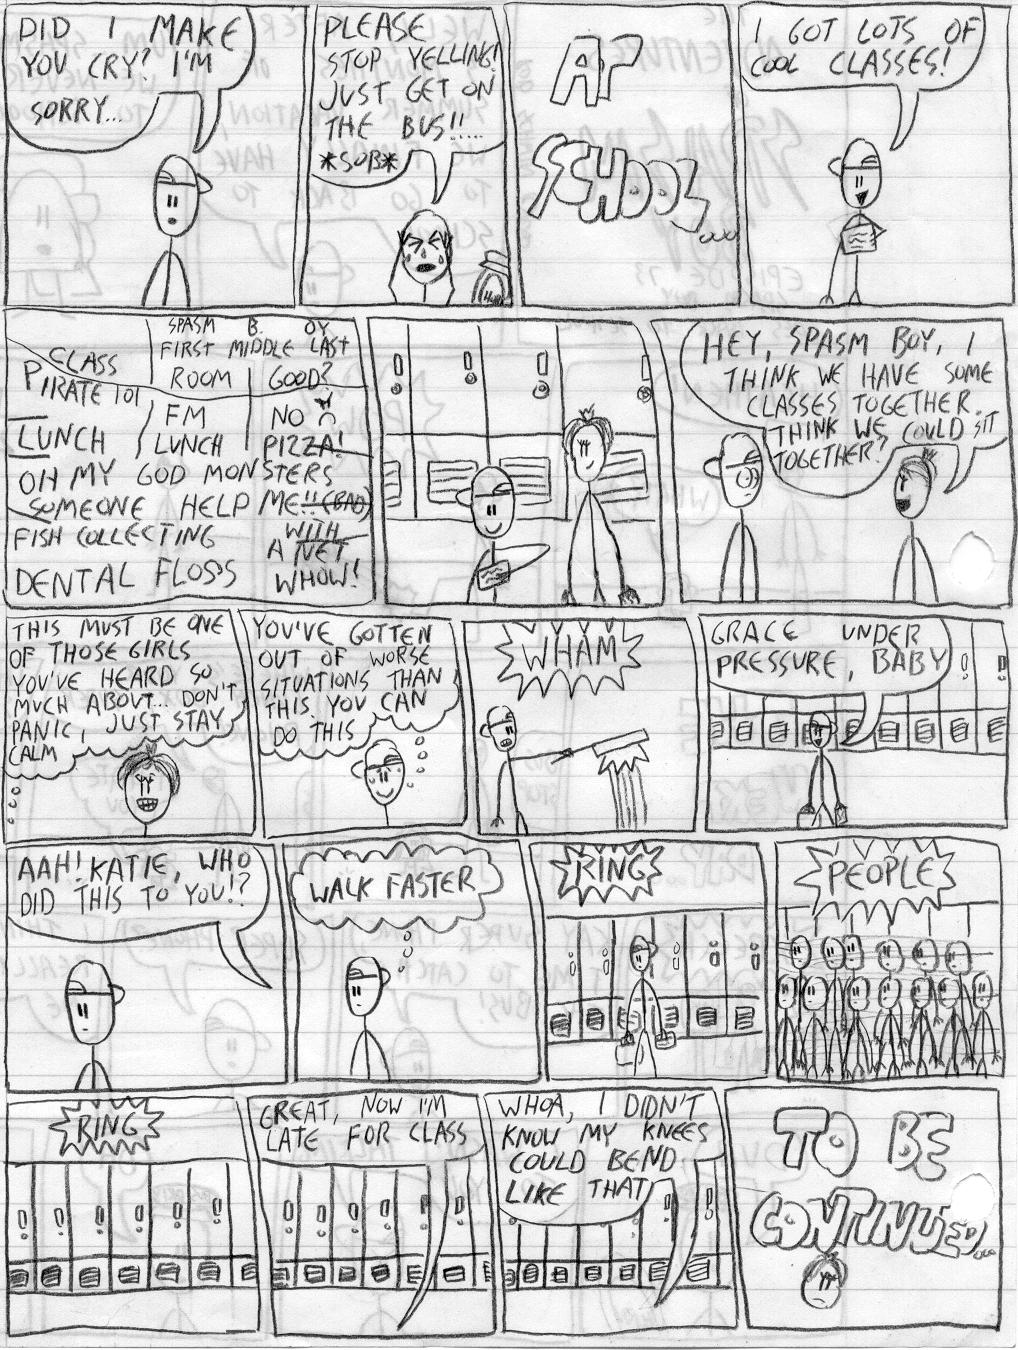 DID I MAKE
YOU CRY? I'M
SORRY...
PLEASE
STOP YELLING!
JUST GET ON
THE BUS!!....
*SOB*
AT
SCHOOL...
I GOT LOTS OF
COOL CLASSES!
SPASM B. OY
FIRST MIDDLE LAST
CLASS
ROOM
GOOD?
PIRATE 101
FM
NO
LUNCH
LUNCH
PIZZA!
OH MY GOD MONSTERS
SOMEONE HELP ME!! (BAD)
FISH COLLECTING
WITH
A NET
DENTAL FLOSS
WHOW!
HEY, SPASM BOY, I
THINK WE HAVE SOME
CLASSES TOGETHER.
THINK WE COULD SIT
TOGETHER?
THIS MUST BE ONE
OF THOSE GIRLS
YOU'VE HEARD SO
MUCH ABOUT... DON'T
PANIC, JUST STAY
CALM
YOU'VE GOTTEN
OUT OF WORSE
SITUATIONS THAN
THIS YOU CAN
DO THIS
WHAM
GRACE UNDER
PRESSURE, BABY
AAH! KATIE, WHO
DID THIS TO YOU!?
WALK FASTER
RING
PEOPLE
RING
GREAT, NOW I'M
LATE FOR CLASS
WHOA, I DIDN'T
KNOW MY KNEES
COULD BEND
LIKE THAT
TO BE
CONTINUED...